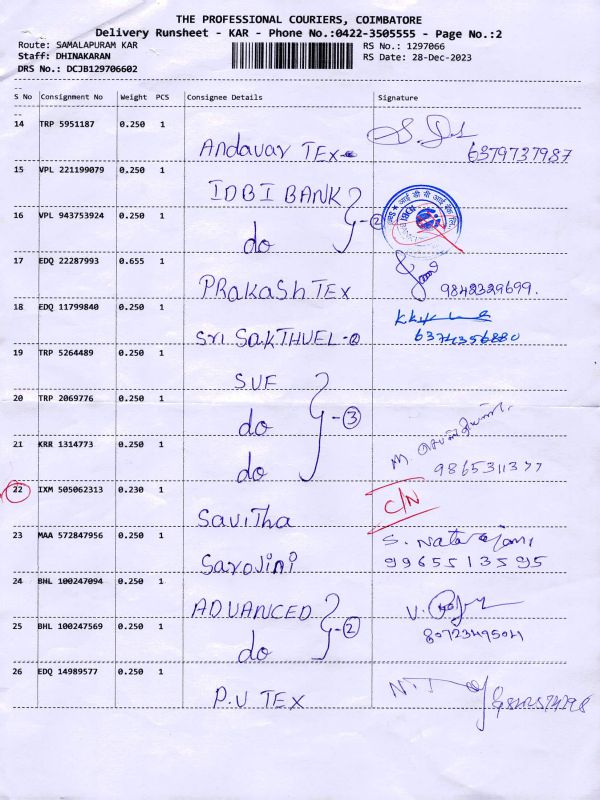 THE PROFESSIONAL COURIERS, COIMBATORE
Delivery Runsheet - KAR - Phone No.:0422-3505555 - Page No.:2
Route: SAMALAPURAM KAR
RS No.: 1297066
Staff: DHINAKARAN
RS Date: 28-Dec-2023
DRS No.: DCJB129706602
S No Consignment No Weight PCS Consignee Details Signature
14 TRP 5951187 0.250 1
Andavar TEX
6379737987
15 VPL 221199079 0.250 1
IDBI BANK
16 VPL 943753924 0.250 1
do
2
17 EDQ 22287993 0.655 1
PRakaSh TEX
9842329699.
18 EDQ 11799840 0.250 1
Sri SaKTHUEL
6374356880
19 TRP 5264489 0.250 1
SUF
20 TRP 2069776 0.250 1
do
3
21 KRR 1314773 0.250 1
do
22 IXM 505062313 0.230 1
Savitha
C/N
23 MAA 572847956 0.250 1
Sarojini
S. Natarajani
9965513595
24 BHL 100247094 0.250 1
ADVANCED
2
25 BHL 100247569 0.250 1
do
26 EDQ 14989577 0.250 1
P.U TEX